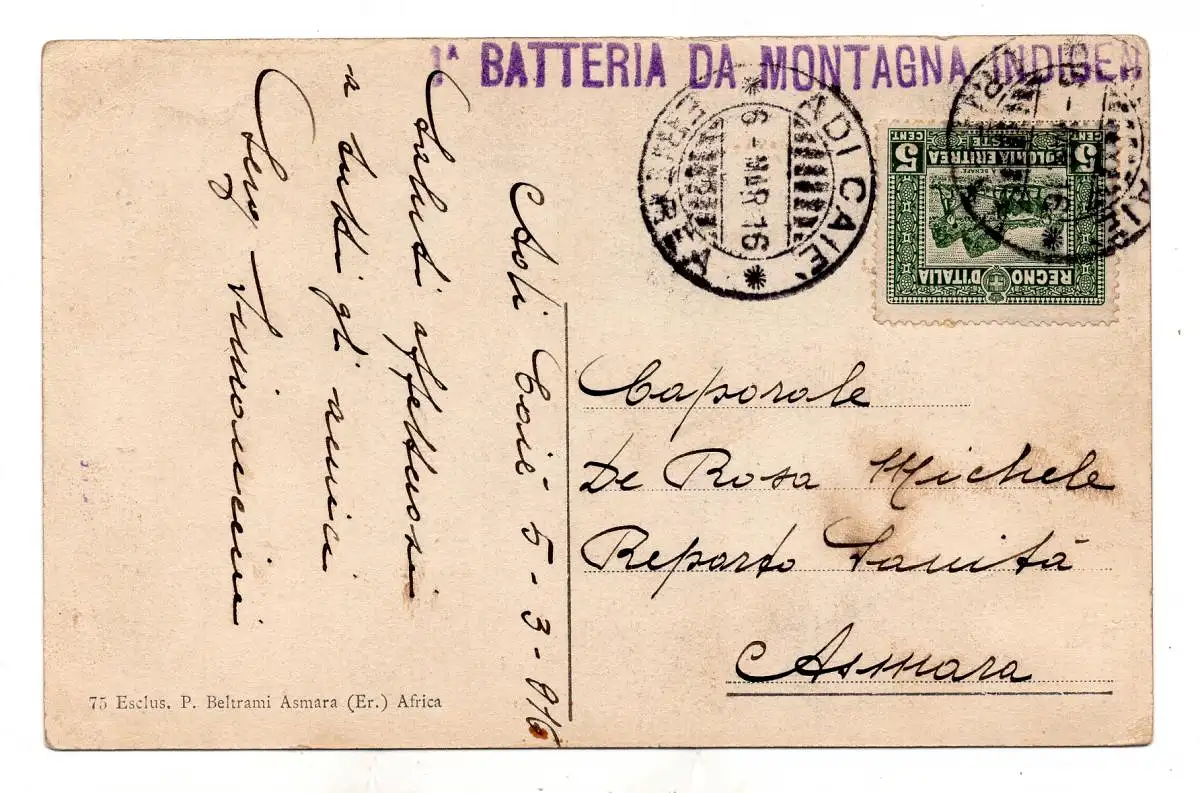 1ª BATTERIA DA MONTAGNA INDIGEN
ADI CAIE'
6 - MAR - 16
ERITREA
5 CENT
COLONIA ERITREA
POSTE
5 CENT
REGNO D'ITALIA
Adi Caiè 5-3-916
Saluti affettuosi
a tutti gli amici
Serg.
Caporale
De Rosa Michele
Reparto Sanità
Asmara
75 Esclus. P. Beltrami Asmara (Er.) Africa